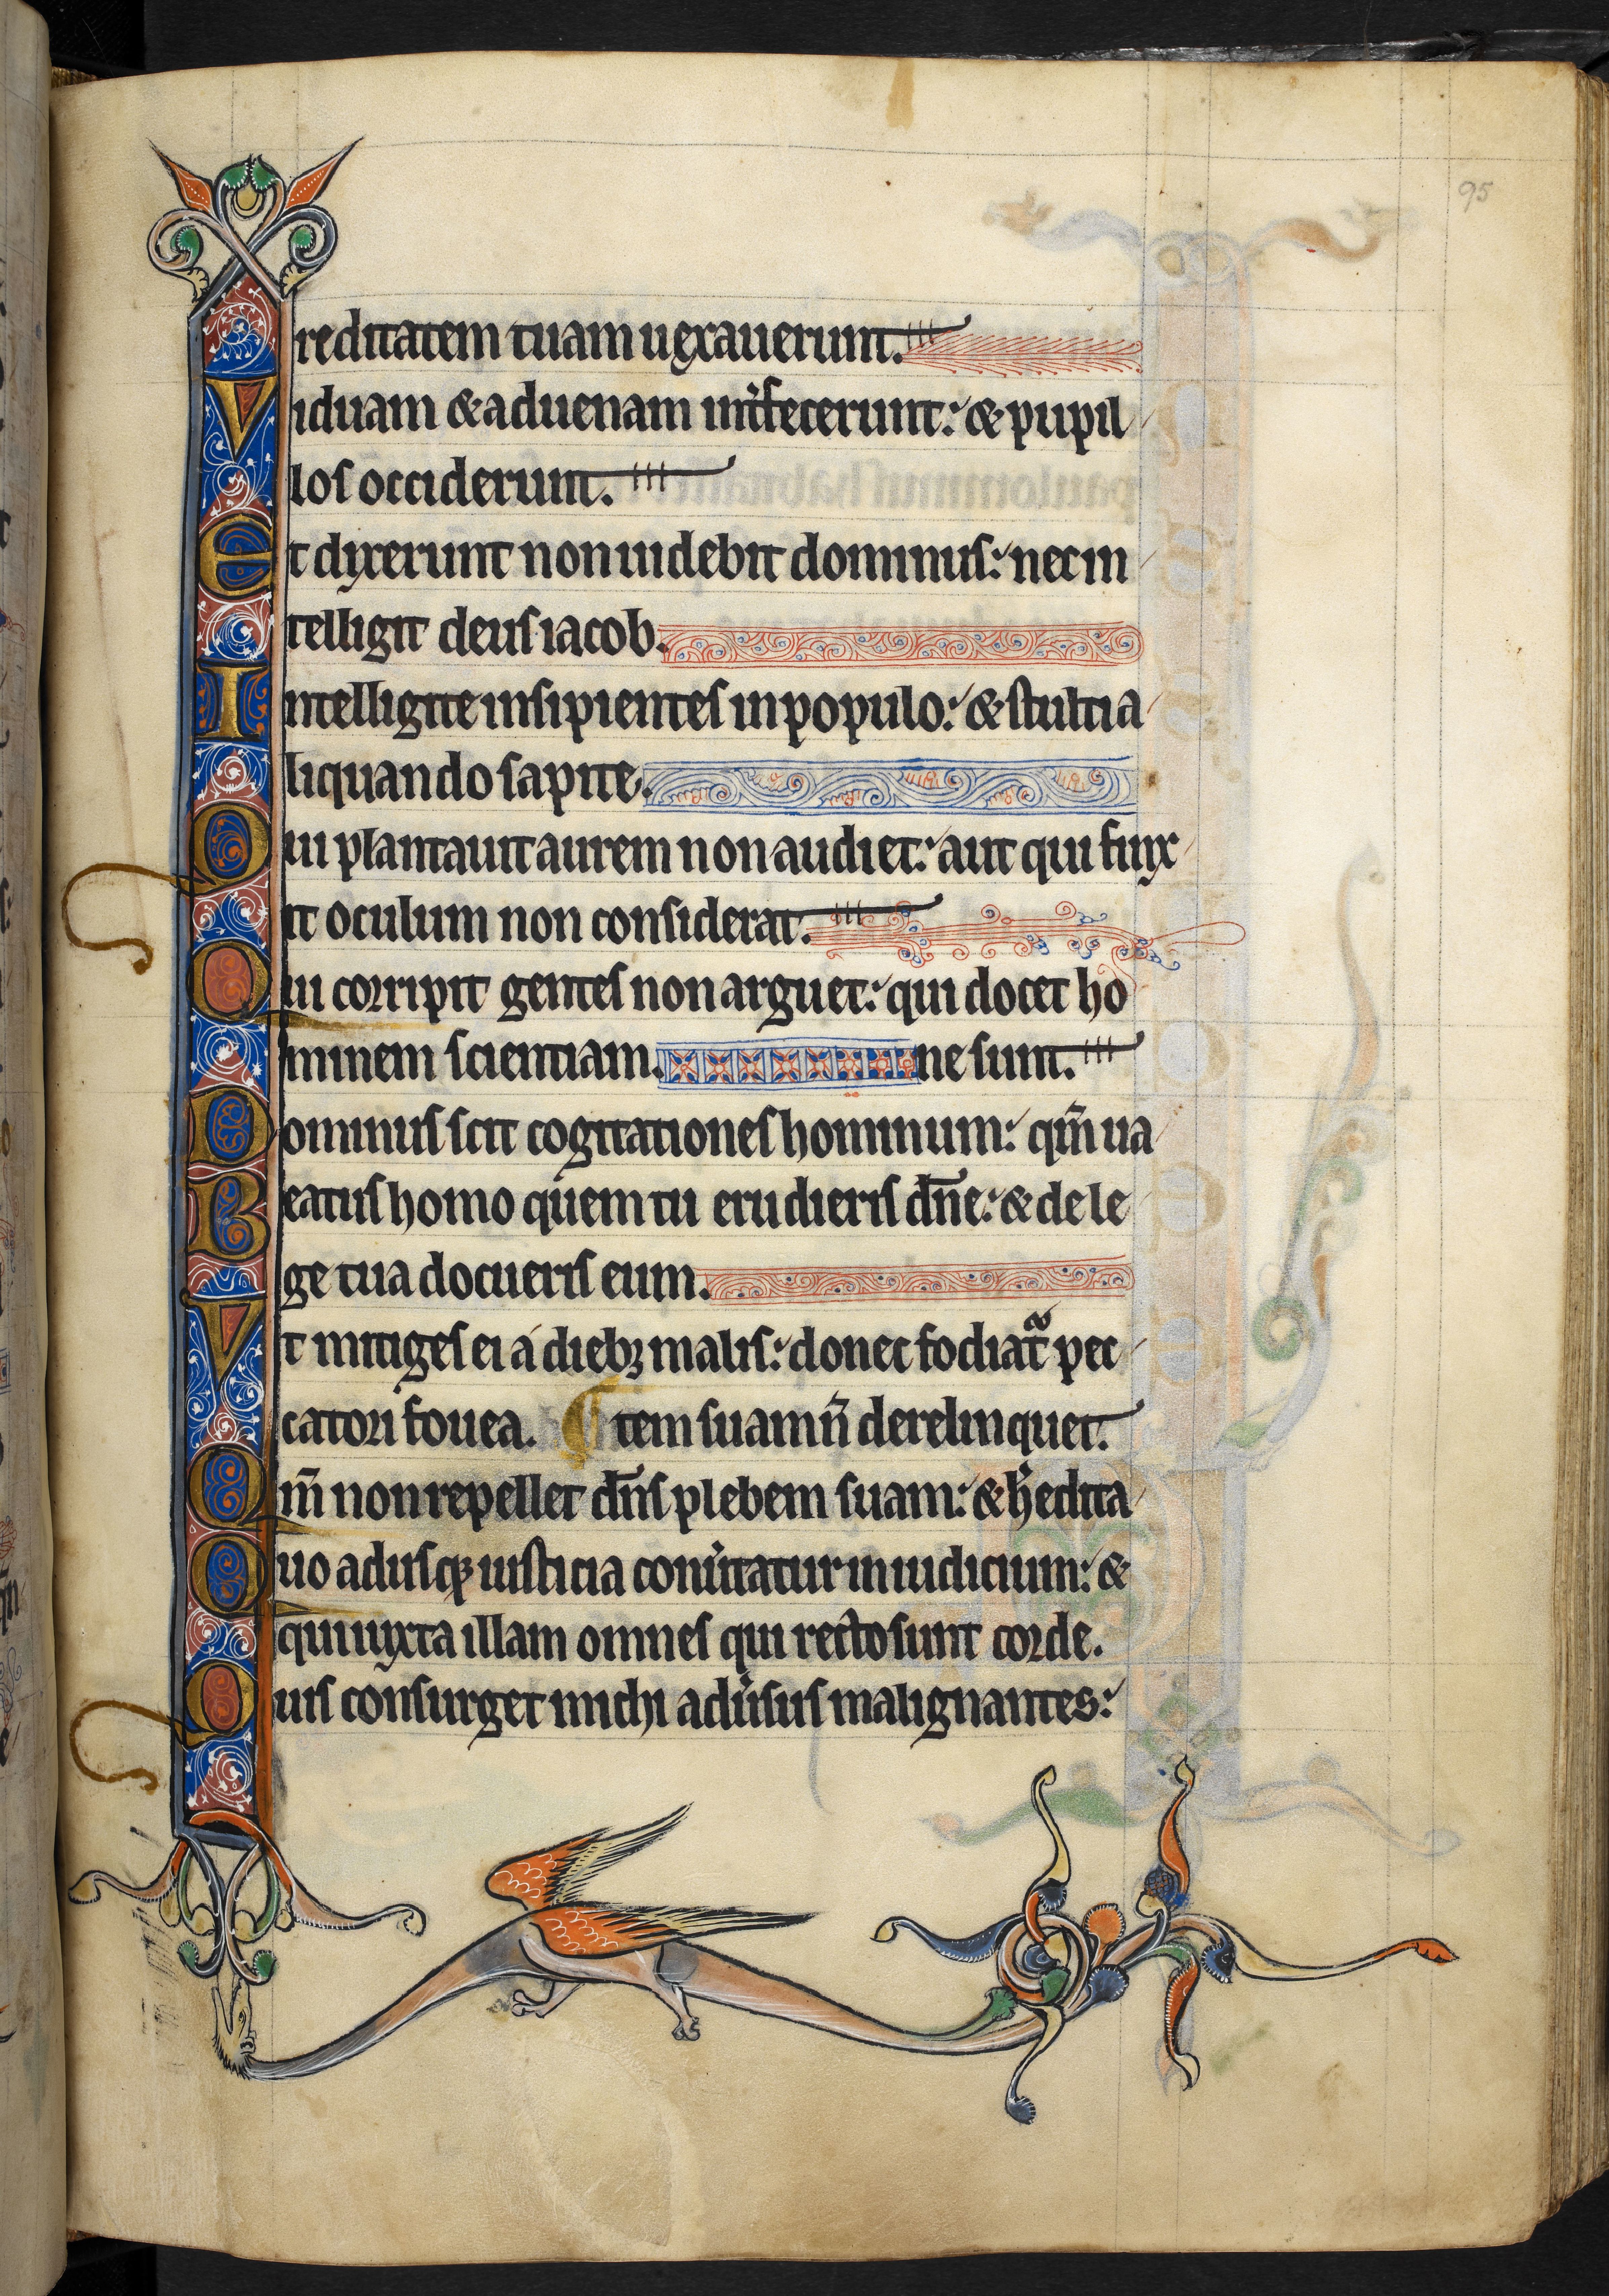 95
reditatem tuam uexauerunt.
Viduam & aduenam int̾fecerunt: & pupil
los occiderunt.
Et dixerunt non uidebit dominus: nec in
telligit deus iacob.
Intelligite insipientes in populo: & stulti a
liquando sapite.
Qui plantauit aurem non audiet: aut qui finx
it oculum non considerat.
Qui corripit gentes non arguet: qui docet ho
minem scientiam. ne sunt.
Dominus scit cogitationes hominum: qm̄ ua
Beatus homo quem tu erudieris dn̄e: & de le
ge tua docueris eum.
Vt mitiges ei a dieb; malis: donec fodiat᷑ pec
catori fouea. ¶ tem suam n̄ derelinquet.
Qm̄ non repellet dn̄s plebem suam: & h̾edita
Quo adusq; iusticia conu̾tatur in iudicium: &
qui iuxta illam omnes qui recto sunt corde.
Quis consurget michi adu̾sus malignantes: